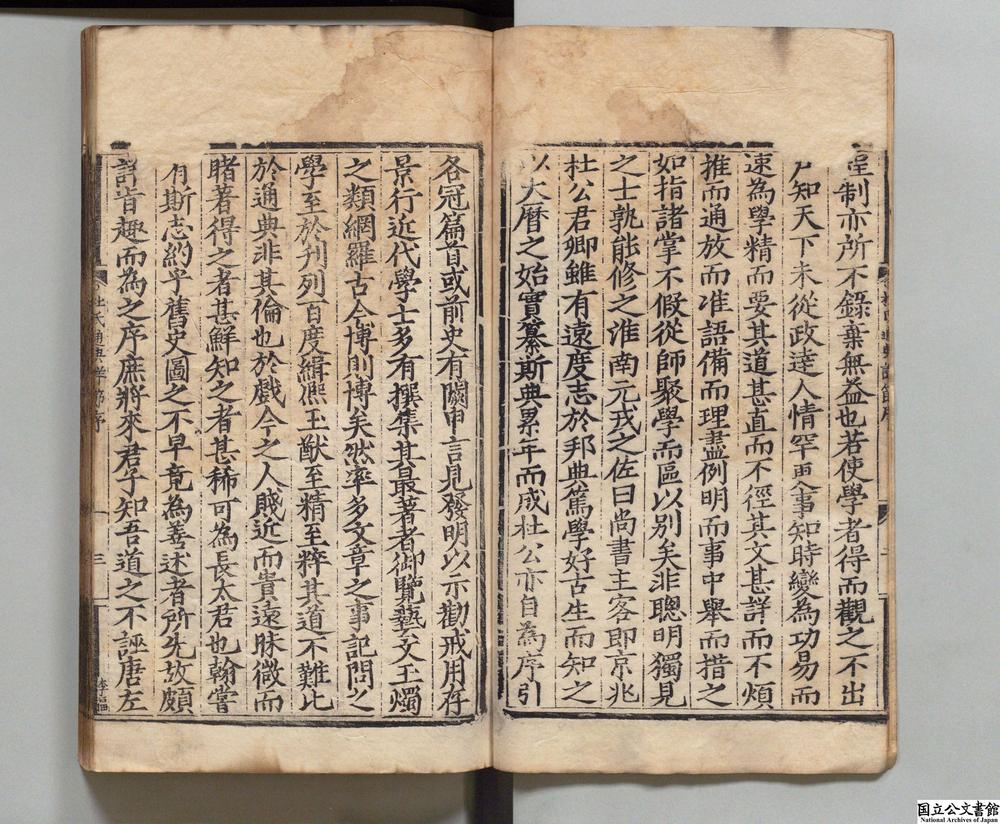 聖制亦所不錄棄無益也若使學者得而觀之不出
戶知天下未從政達人情罕更事知時變為功易而
速為學精而要其道甚直而不徑其文甚詳而不煩
推而通放而准語備而理盡例明而事中舉而措之
如指諸掌不假從師聚學而區以別矣非聰明獨見
之士孰能修之淮南元戎之佐曰尚書主客郎京兆
杜公君卿雖有遠度志於邦典篤學好古生而知之
以大曆之始實纂斯典累年而成杜公亦自為序引
各冠篇首或前史有闕申言見發明以示勸戒用存
景行近代學士多有撰集其最著者御覽藝文玉燭
之類網羅古今博則博矣然率多文章之事記問之
學至於刋列百度緝熈王猷至精至粹其道不難比
於通典非其倫也於戲今之人賤近而貴遠昧微而
睹著得之者甚鮮知之者甚稀可為長太君也翰嘗
有斯志約乎舊史圖之不早竟為善述者所先故頗
詳旨趣而為之序庶將來君子知吾道之不誣唐左
杜氏通典詳節序
三
国立公文書館
National Archives of Japan